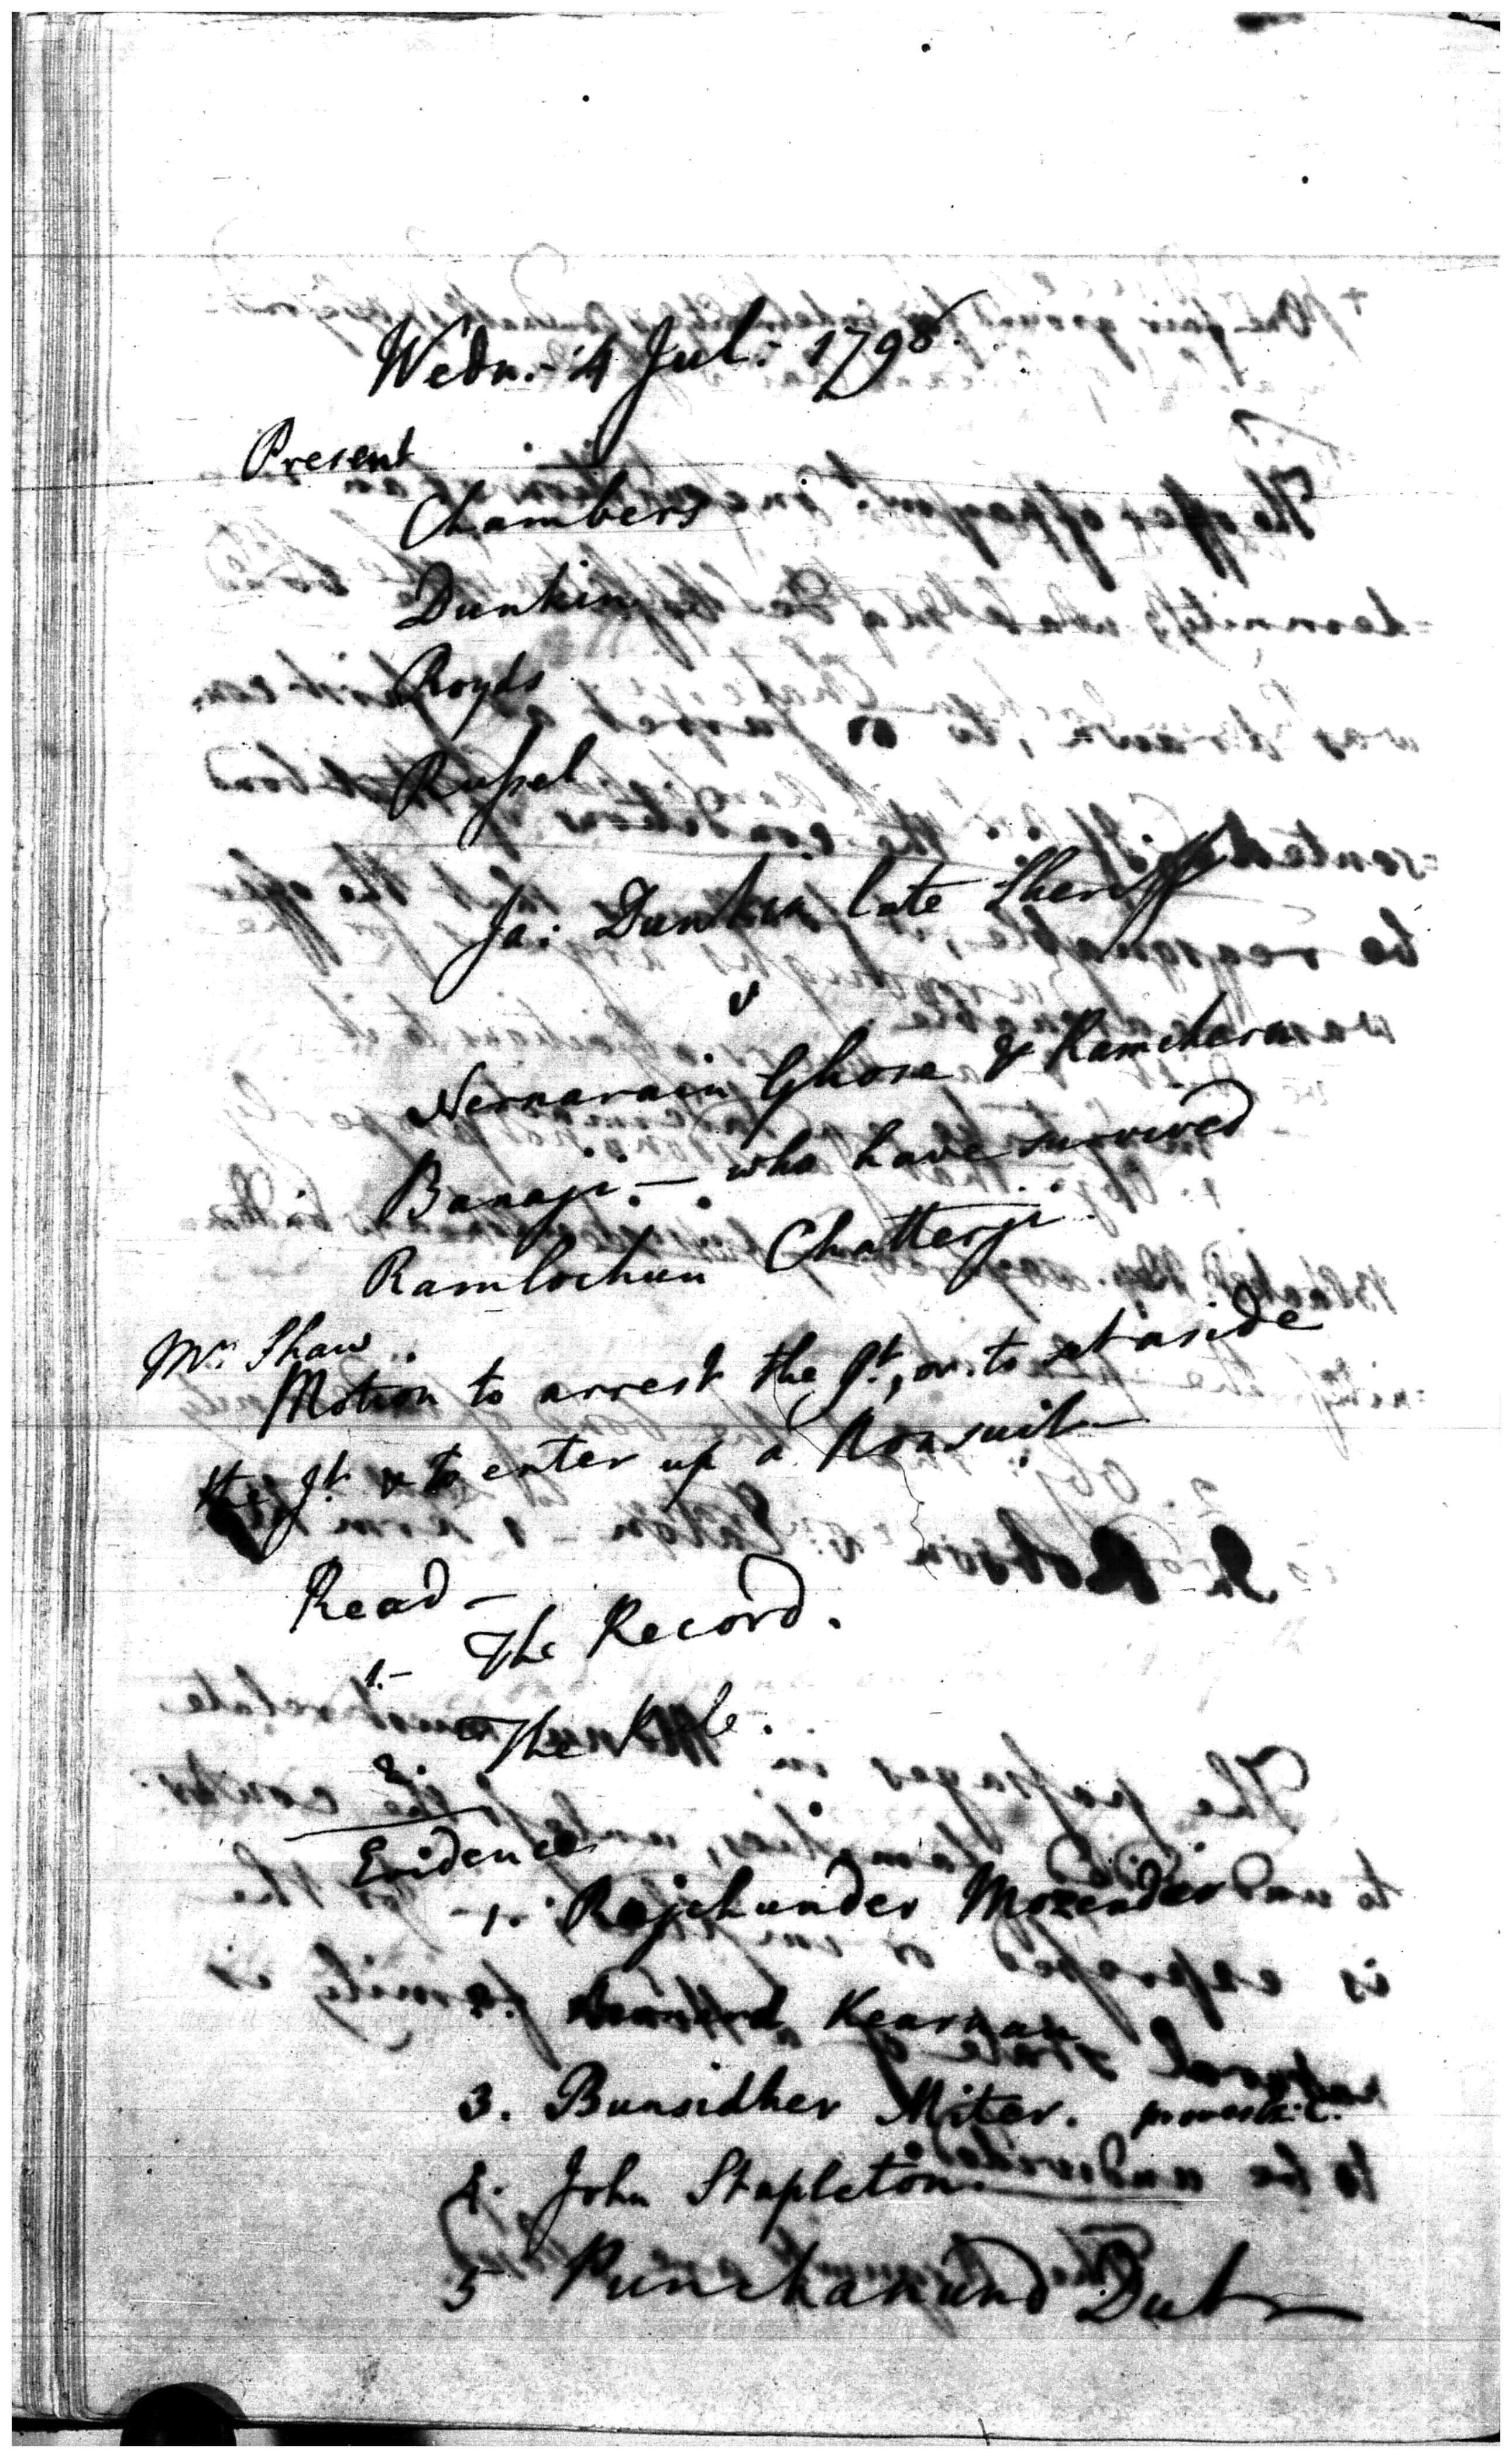 Wedn. 4 Jul. 1798.
Present
Chambers
Dunkin
Royds
Russel
Ja: Dunkin late Sheriff
v
Nernarain Ghose & Ramchern
Banaji. — who have survived
Ramlochun Chatterji
Mr. Shaw
Motion to arrest the Jt, or to set aside
the Jt & to enter up a Nonsuit —
Read —
1. — The Record.
2. The Rule.
Evidence
1. Rajchunder Mozendar
2. Kearnan
3. Bunsidher Miter.
4. John Stapleton.
5 Punchanund Dut